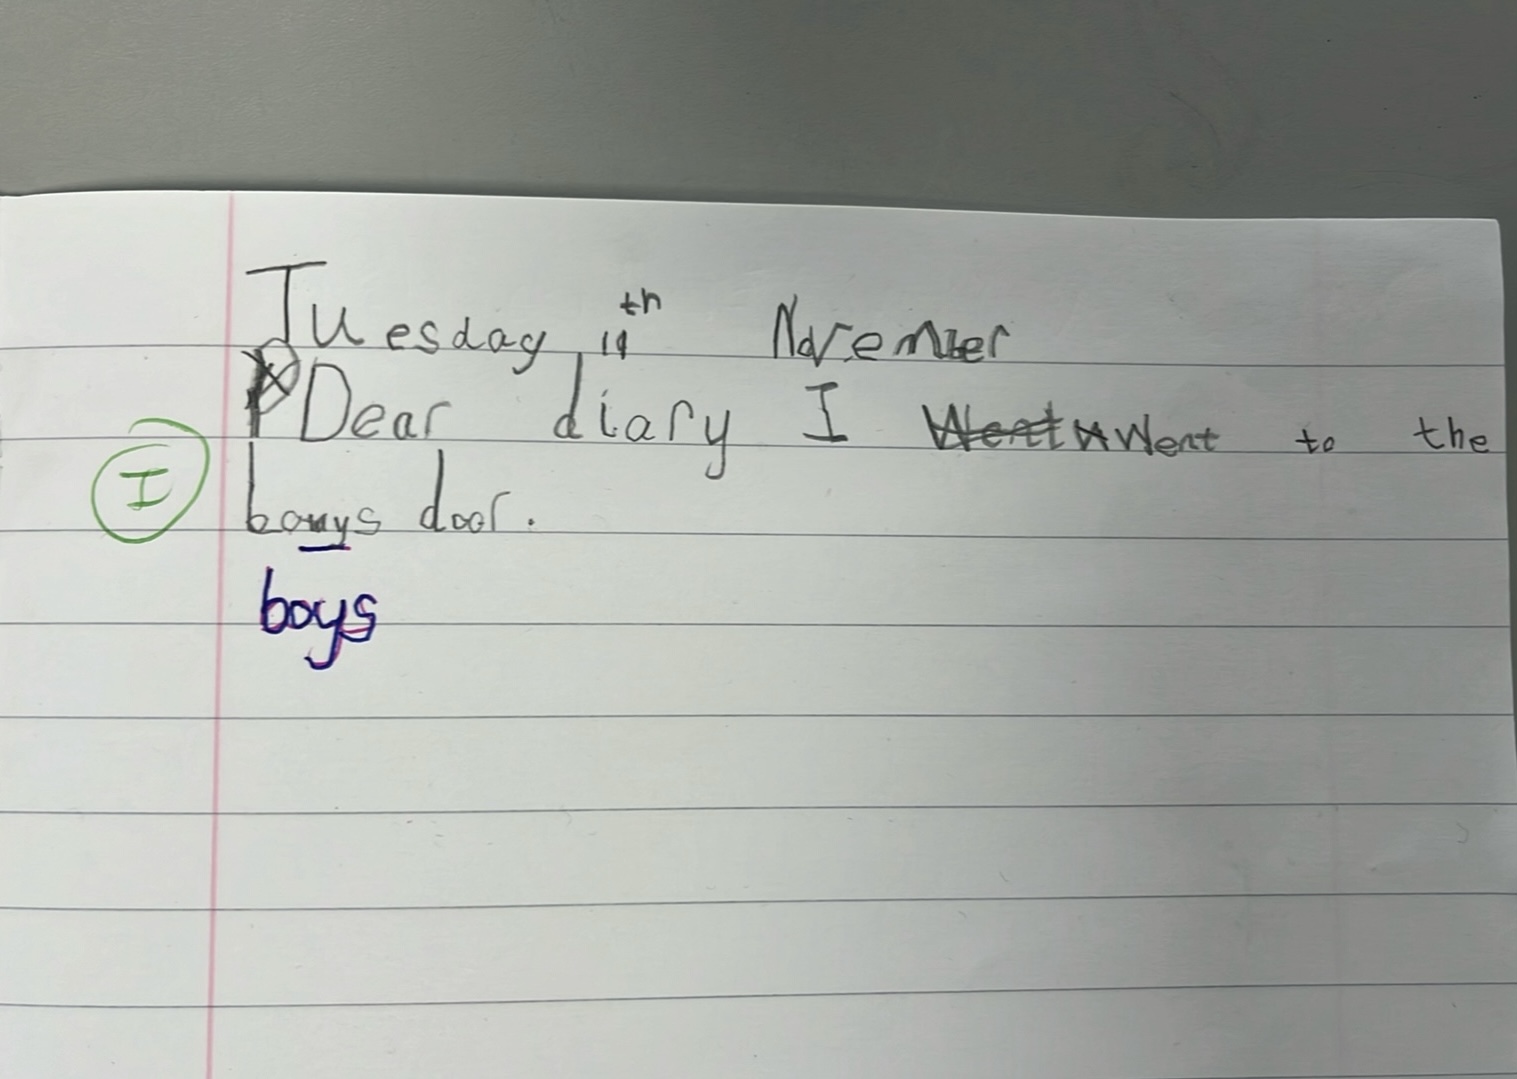 Tuesday 19th November
Dear diary I Went to the
I
bouys door.
boys